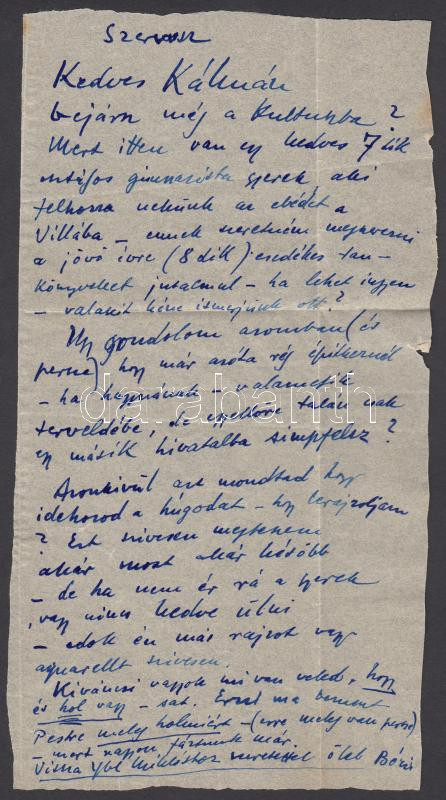 Szervusz
Kedves Kálmán
bejársz még a Kultuszba?
Mert itten van egy kedves 7.-ik
osztályos gimnazista gyerek, aki
felhozza nekünk az ebédet a
Villába – ennek szeretném megszerezni
a jövő évre (8dik) esedékes tan-
könyveket jutalmul – ha lehet ingyen
– valakit kéne ismerjünk ott?
Úgy gondolom azonban (és
persze) hogy már azóta rég építkeznél
– ha valamelyik
tervelődbe, de egyelőre talán csak
egy másik hivatalba simpfelsz?
Azonkívül azt mondtad hogy
idehozod a húgodat – hogy lerajzoljam
? Ezt szívesen megteszem
akár most akár később
– de ha nem ér rá a gyerek
, vagy nincs kedve ülni
– adok én más rajzot vagy
aquarellt szívesen.
Kiváncsi vagyok mi van veled, hogy
és hol vagy – sat. Erzsi ma bement
Pestre még holmiért – (erre még van persze)
– mert nagyon fáztunk már.
Vissza Ybl Miklóshoz szeretettel ölel Béni
darabanth